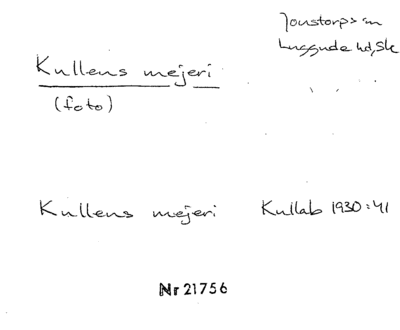 Jonstorps sn
Luggude hd, Sk
Kullens mejeri
(foto)
Kullens mejeri Kullab 1930:41
Nr 21756